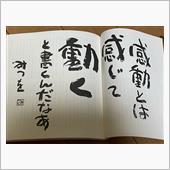 感動とは
感じて
動く
と書くんだなあ
みつを